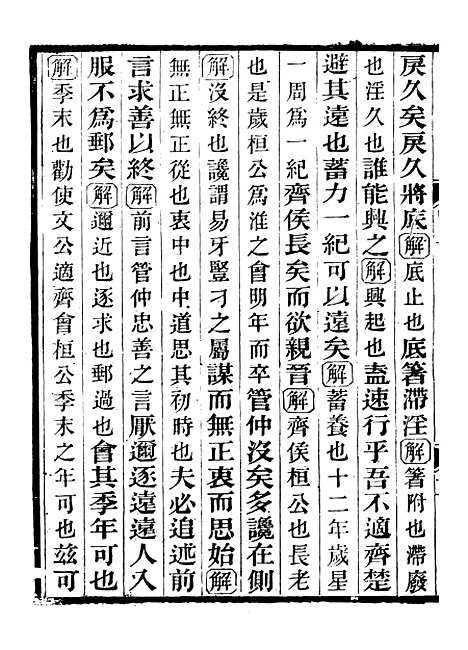 戾久矣戾久將底解底止也底箸滯淫解箸附也滯廢
也淫久也誰能興之解興起也盍速行乎吾不適齊楚
避其遠也蓄力一紀可以遠矣解蓄養也十二年歲星
一周爲一紀齊侯長矣而欲親晉解齊侯桓公也長老
也是歲桓公爲淮之會明年而卒管仲沒矣多讒在側
解沒終也讒謂易牙豎刁之屬謀而無正衷而思始解
無正無正從也衷中也中道思其初時也夫必追述前
言求善以終解前言管仲忠善之言厭邇逐遠遠人入
服不爲郵矣解邇近也逐求也郵過也會其季年可也
解季末也勸使文公適齊會桓公季末之年可也茲可